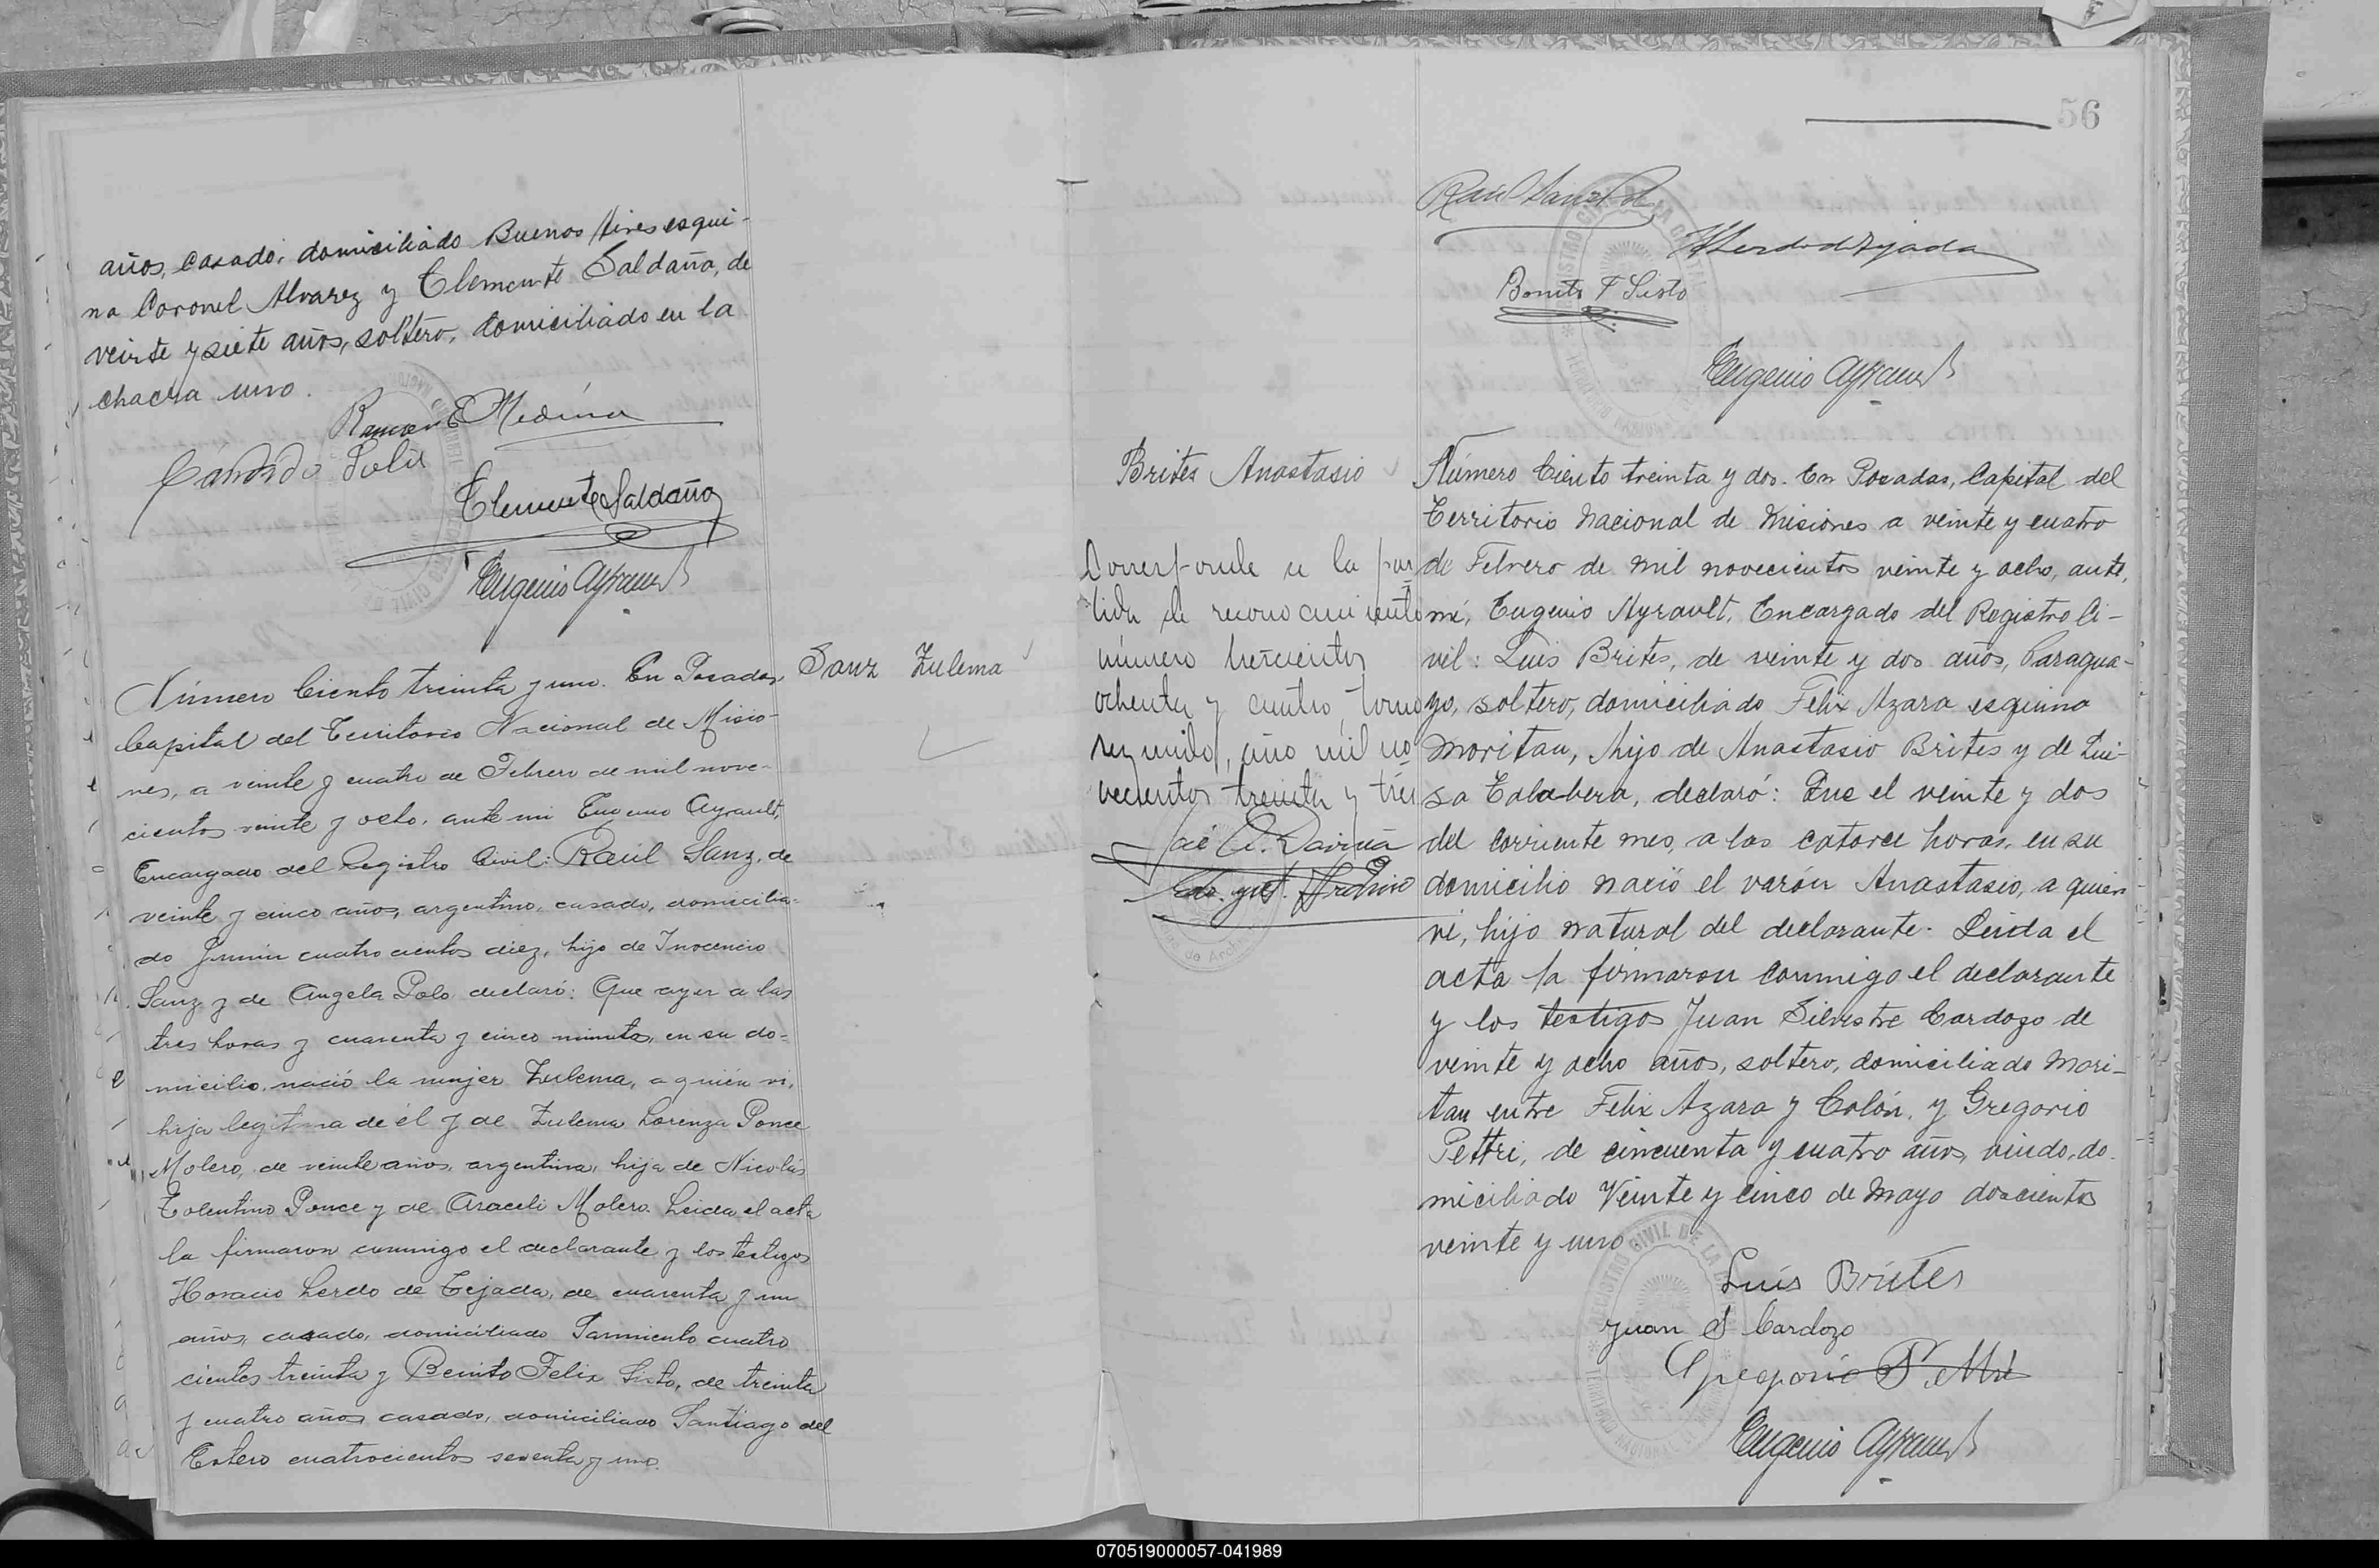 años, casado, domiciliado Buenos Aires esqui-
na Coronel Alvarez y Clemente Saldaña, de
veinte y siete años, soltero, domiciliado en la
chacra uno.
Ramon E Medina
Cándido Solis
Clemente Saldaña
Eugenio Ayrault
Número Ciento treinta y uno. En Posadas,
Capital del Territorio Nacional de Misio-
nes, a veinte y cuatro de Febrero de mil nove-
cientos veinte y ocho, ante mi Eugenio Ayrault,
Encargado del Registro Civil: Raúl Sanz, de
veinte y cinco años, argentino, casado, domicilia-
do Junin cuatrocientos diez, hijo de Inocencio
Sanz y de Angela Polo declaró: Que ayer a las
tres horas y cuarenta y cinco minutos, en su do-
micilio, nació la mujer Zulema, a quién vi,
hija legitima de él y de Zulema Lorenza Ponce
Molero, de veinte años, argentina, hija de Nicolás
Tolentino Ponce y de Araceli Molero. Leida el acta
la firmaron conmigo el declarante y los testigos
Horacio Lerdo de Tejada, de cuarenta y un
años, casado, domiciliado Sarmiento cuatro
cientos treinta y Benito Felix Sisto, de treinta
y cuatro años casado, domiciliado Santiago del
Estero cuatrocientos setenta y uno.
Sanz Zulema
56
Raúl Sanz Polo
HLerdodeTejada
Benito F Sisto
Eugenio Ayrault
Brites Anastasio
Corresponde a la par
tida de reconocimiento
número trescientos
ochenta y cuatro, tomo
segundo, año mil no
vecientos treinta y tres
Número Ciento treinta y dos. En Posadas, Capital del
Territorio Nacional de Misiones a veinte y cuatro
de Febrero de mil novecientos veinte y ocho, ante,
mi, Eugenio Ayrault, Encargado del Registro Ci-
vil: Luis Brites, de veinte y dos años, Paragua-
yo, soltero, domiciliado Felix Azara esquina
Moritan, hijo de Anastasio Brites y de Lui-
sa Talabera, declaró: Que el veinte y dos
del corriente mes, a las catorce horas, en su
domicilio nació el varón Anastasio, a quien
vi, hijo natural del declarante. Leida el
acta la firmaron conmigo el declarante
y los testigos Juan Silvestre Cardozo de
veinte y ocho años, soltero, domiciliado Mori-
tan entre Felix Azara y Colón, y Gregorio
Pettri, de cincuenta y cuatro años, viudo, do-
miciliado Veinte y cinco de Mayo doscientos
veinte y uno
Luis Brites
Juan S Cardozo
Gregorio
Eugenio Ayrault
070519000057-041989